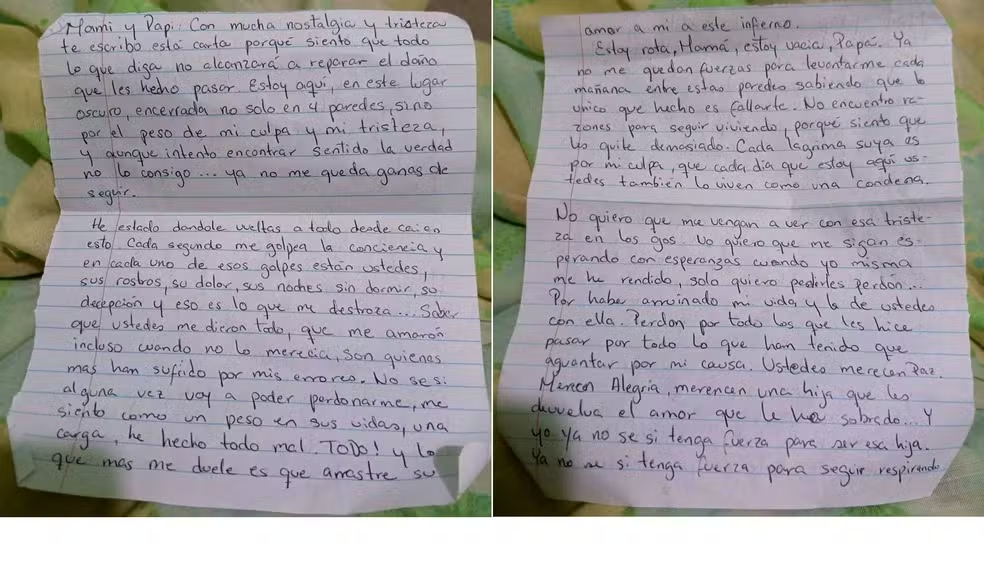 Mami y Papi: Con mucha nostalgia y tristeza
te escribo está carta porqué siento que todo
lo que diga no alcanzará a reparar el daño
que les hecho pasar. Estoy aquí, en este lugar
oscuro, encerrada no solo en 4 paredes, sino
por el peso de mi culpa y mi tristeza,
y aunque intento encontrar sentido la verdad
no lo consigo... ya no me queda ganas de
seguir.
He estado dandole vueltas a todo desde caí en
esto. Cada segundo me golpea la conciencia y
en cada uno de esos golpes están ustedes,
sus rostros, su dolor, sus noches sin dormir, su
decepción y eso es lo que me destroza... Saber
que ustedes me dieron todo, que me amarón
incluso cuando no lo merecia, son quienes
mas han sufrido por mis errores. No se si
alguna vez voy a poder perdonarme, me
siento como un peso en sus vidas, una
carga, he hecho todo mal. TODO! y lo
que mas me duele es que arrastre su
amor a mi a este infierno.
Estoy rota, Mamá, estoy vacia, Papá. Ya
no me quedan fuerzas para levantarme cada
mañana entre estas paredes sabiendo que lo
unico que hecho es fallarte. No encuentro ra-
zones para seguir viviendo, porqué siento que
yo quite demasiado. Cada lagrima suya es
por mi culpa, que cada dia que estoy aquí us-
tedes también lo viven como una condena.
No quiero que me vengan a ver con esa triste-
za en los ojos. No quiero que me sigan es-
perando con esperanzas cuando yo misma
me he rendido, solo quiero pedirles perdón...
Por haber arruinado mi vida y la de ustedes
con ella. Perdon por todo los que les hice
pasar por todo lo que han tenido que
aguantar por mi causa. Ustedes merecen Paz.
Merecen Alegria, merencen una hija que les
devuelva el amor que le ha sobrado... Y
yo ya no se si tenga fuerza para ser esa hija.
Ya no se si tenga fuerza para seguir respirando